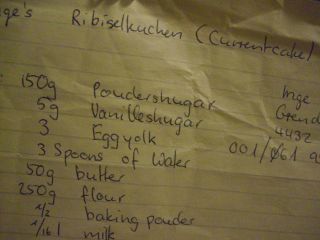 Ribiselkuchen (Currentcake)
150g Poudershugar
5g Vanilleshugar
3 Eggyolk
3 Spoons of Water
50g butter
250g flour
1/2 baking pouder
1/16 l milk
Inge
4432